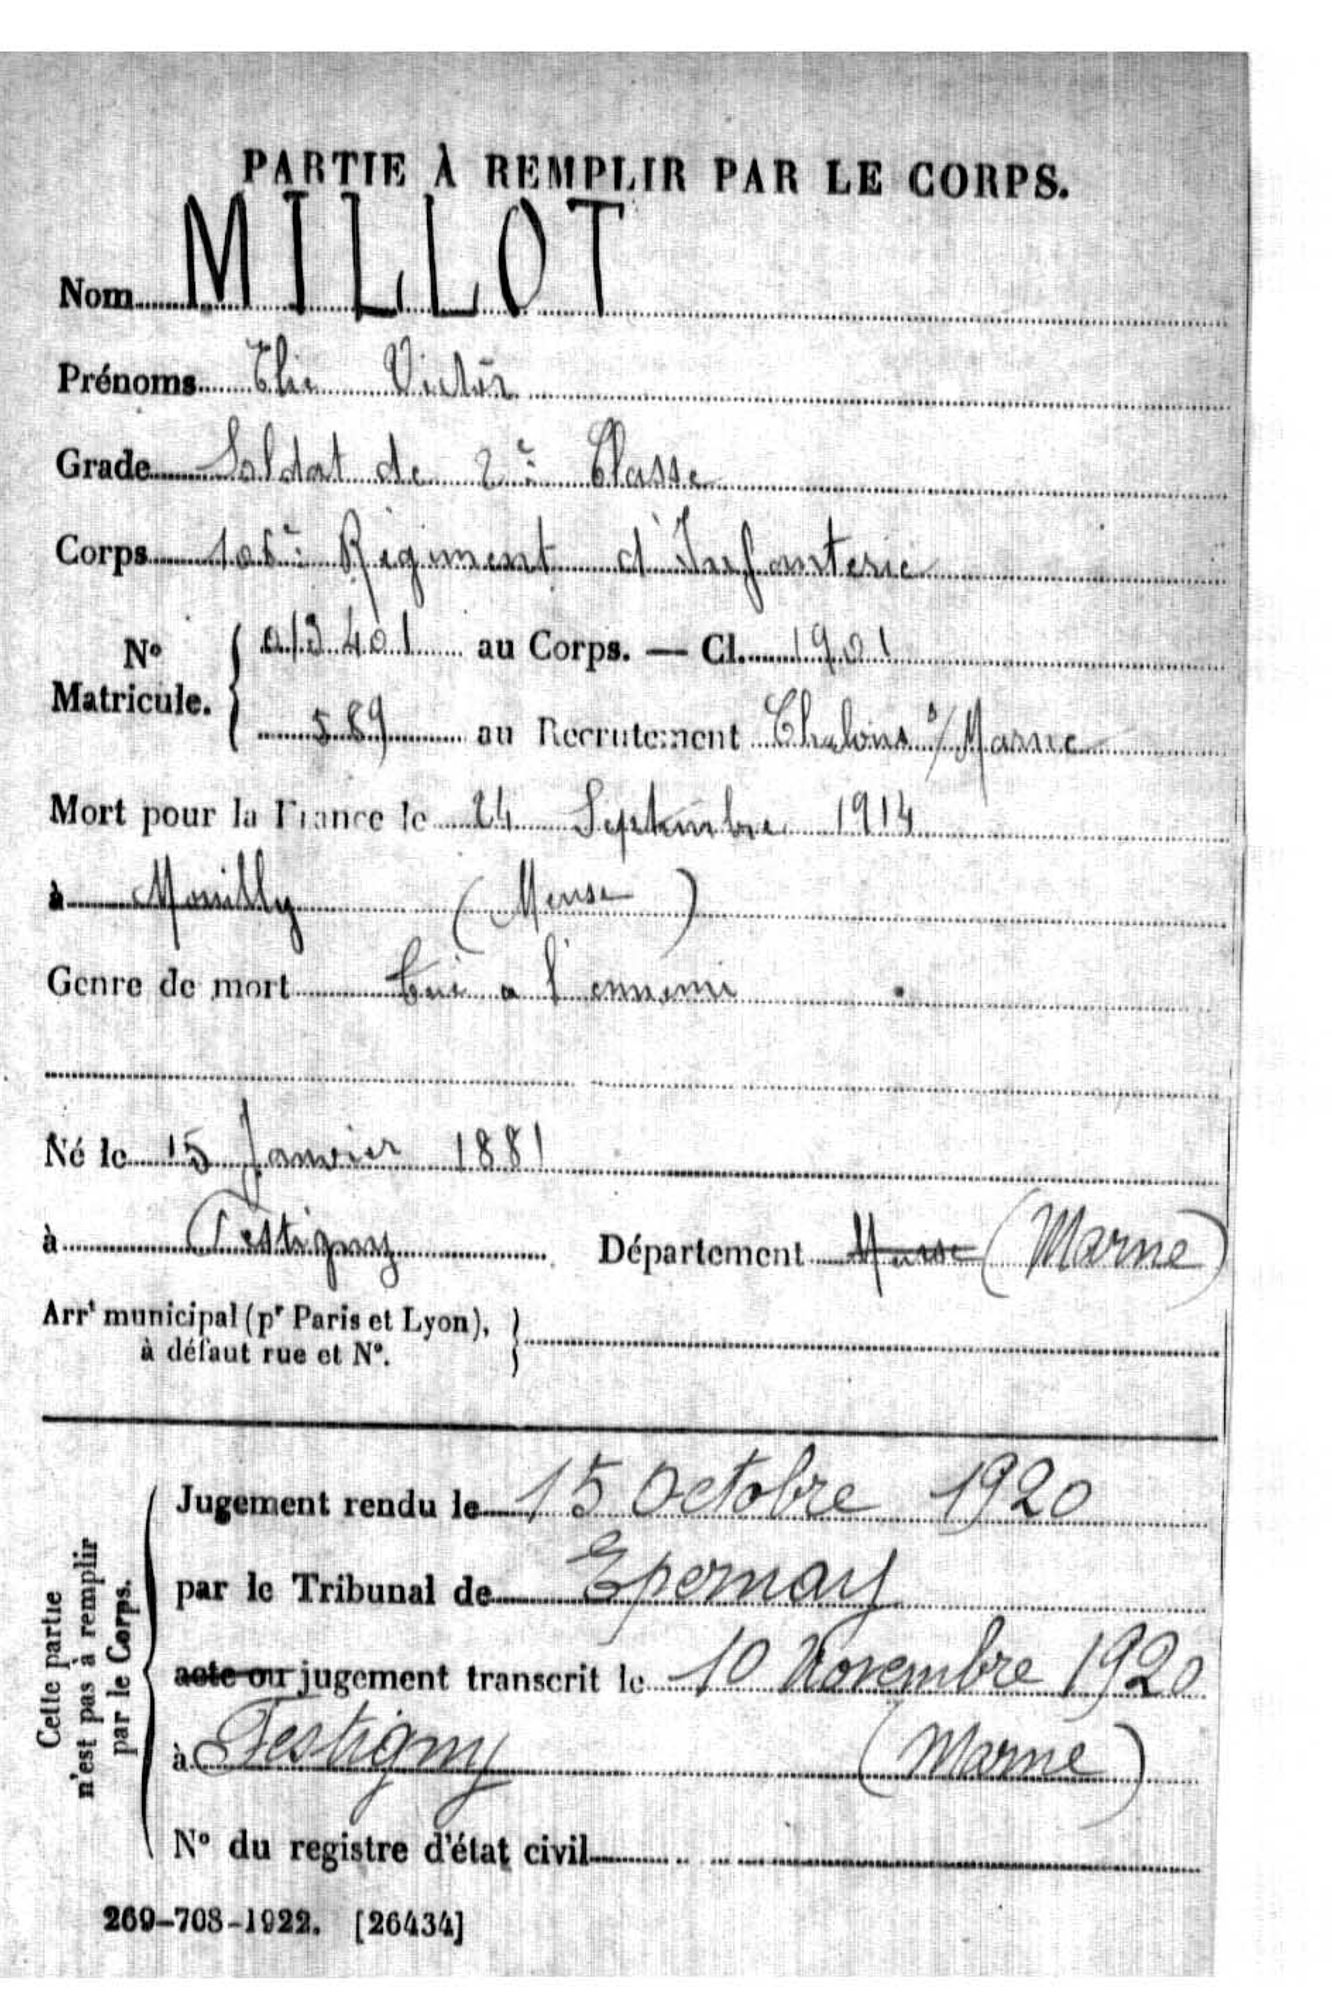 PARTIE À REMPLIR PAR LE CORPS.
Nom MILLOT
Prénoms Elie Victor
Grade Soldat de 2e Classe
Corps 106e Régiment d'Infanterie
No Matricule. 013401 au Corps. — Cl. 1901
589 au Recrutement Chalons s/Marne
Mort pour la France le 24 Septembre 1914
à Mouilly (Meuse)
Genre de mort Tué a l'ennemi
Né le 15 Janvier 1881
à Festigny Département Meuse (Marne)
Arrt municipal (pr Paris et Lyon),
à défaut rue et No.
Cette partie
n'est pas à remplir
par le Corps.
Jugement rendu le 15 Octobre 1920
par le Tribunal de Epernay
acte ou jugement transcrit le 10 Novembre 1920
à Festigny (Marne)
No du registre d'état civil
269-708-1922. [26434]